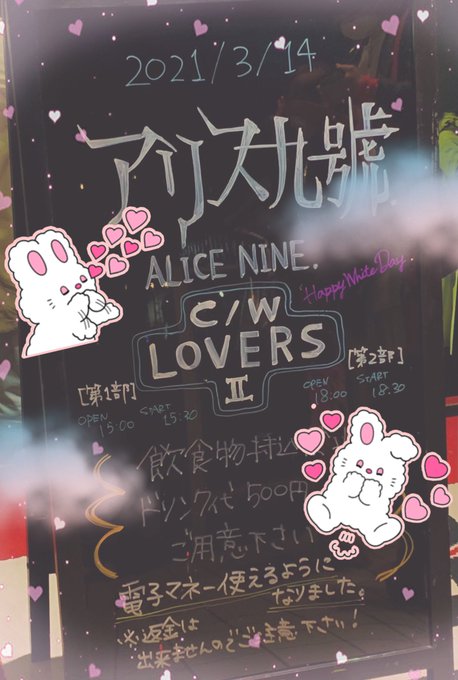 2021/3/14
アリス九號.
ALICE NINE.
Happy White Day
C/W
LOVERS
Ⅱ
[第1部]
OPEN
15:00
START
15:30
[第2部]
OPEN
18:00
START
18:30
飲食物持込
ドリンク代 500円
ご用意下さい
電子マネー使えるように
なりました。
※返金は
出来ませんのでご注意下さい!